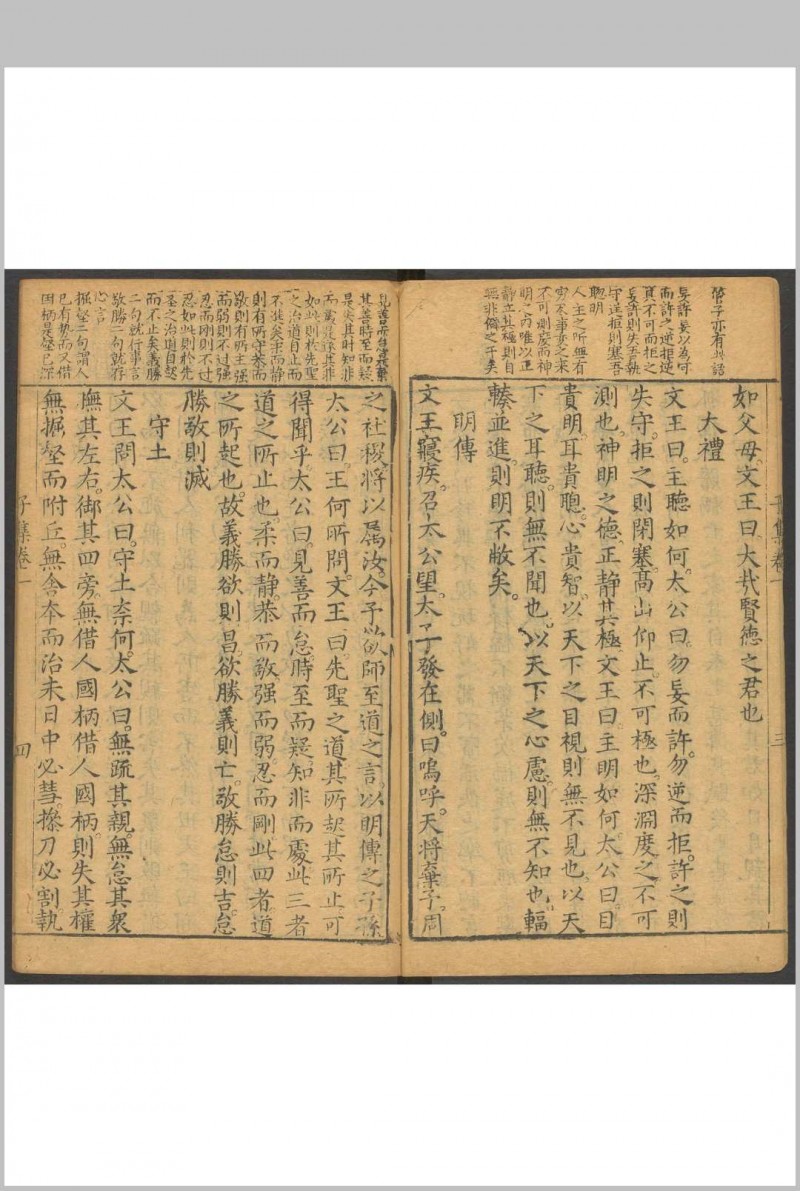 管子亦有此語
妄許妄以為可
而許之逆拒逆
其不可而拒之
妄許則失吾執
守逆拒則塞吾
聰明
人主之所無有
不事妄之來
不可測度而神
明之內唯以正
靜立其極則自
無非僻之干矣
如父母。文王曰。大哉賢德之君也
大禮
文王曰。主聽如何。太公曰。勿妄而許。勿逆而拒。許之則
失守。拒之則閉塞。高山仰止。不可極也。深淵度之。不可
測也。神明之德。正靜其極。文王曰。主明如何。太公曰。目
貴明。耳貴聰。心貴智。以天下之目視。則無不見也。以天
下之耳聽。則無不聞也。以天下之心慮。則無不知也。輻
輳並進。則明不蔽矣。
明傳
文王寢疾。召太公望。太子發在側。曰嗚呼。天將棄予。周
子集卷一
三
見善而怠是棄
其善時至而疑
是失其時知非
而處是遂其非
如此則於先聖
之治道自止而
不能矣柔而靜
則有所守恭而
敬則有所主強
而弱則不過强
忍而剛則不過
忍如此則於先
聖之治道自起
而不止矣義勝
二句就行事言
敬勝二句就存
心言
掘壑二句謂人
已有勢而又借
國柄是壑已深
之社稷。將以屬汝。今予欲師至道之言。以明傳之子孫
太公曰。王何所問。文王曰。先聖之道。其所起。其所止。可
得聞乎。太公曰。見善而怠。時至而疑。知非而處。此三者
道之所止也。柔而靜。恭而敬。强而弱。忍而剛。此四者。道
之所起也。故義勝欲則昌。欲勝義則亡。敬勝怠則吉。怠
勝敬則滅
守土
文王問太公曰。守土奈何。太公曰。無疏其親。無怠其衆
撫其左右。御其四旁。無借人國柄。借人國柄。則失其權
無掘壑而附丘。無舍本而治末。日中必彗。操刀必割。執
子集卷一
四